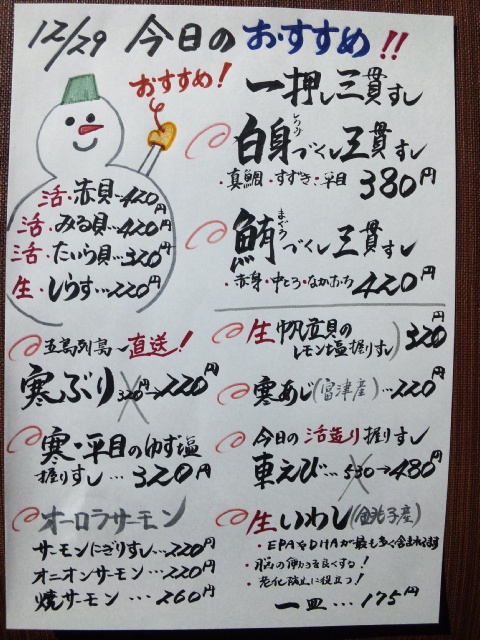 12/29 今日のおすすめ!!
おすすめ!
活・赤貝…420円
活・みる貝…420円
活・たいら貝…320円
生・しらす…220円
一押し三貫すし
白身づくし三貫すし
・真鯛・すずき・平目 380円
まぐろ
鮪づくし三貫すし
・赤身・中とろ・なかおち 420円
五島列島〜直送!
寒ぶり 320円→220円
寒・平目のゆず塩
握りすし…320円
オーロラサーモン
サーモンにぎりすし…220円
オニオンサーモン…220円
焼サーモン…260円
生帆立貝の
レモン塩握りすし 320円
寒あじ(富津産)…220円
今日の活造り握りすし
車えび…530→480円
生いわし(銚子産)
・EPAやDHAが最も多く含まれてます
・脳の働きを良くする!
・老化防止に役立つ!
一皿…175円